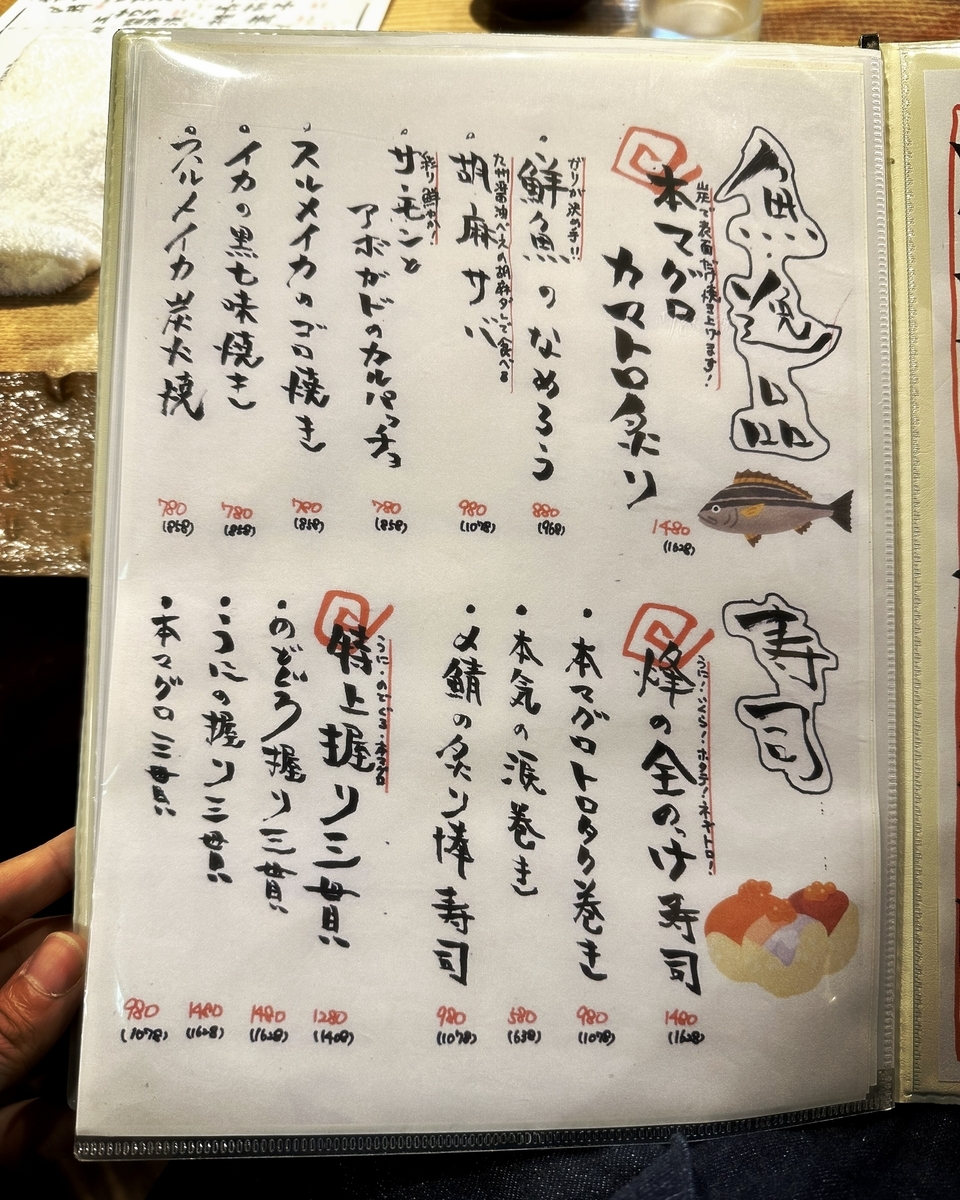 魚逸品
炭で表面だけ焼き上げます!
本マグロ
カマトロ炙り
1480
(1628)
がりが決め手!!
・鮮魚のなめろう
880
(968)
九州醤油ベースの胡麻ダレで食べる
・胡麻サバ
980
(1078)
彩り鮮やか!
・サーモンと
アボガドのカルパッチョ
780
(858)
・スルメイカのゴロ焼き
780
(858)
・イカの黒七味焼き
780
(858)
・スルメイカ炭火焼
780
(858)
寿司
うに!いくら!ホタテ!ネギトロ!
烽の全のっけ寿司
1480
(1628)
・本マグロトロタク巻き
980
(1078)
・本気の涙巻き
580
(638)
・〆鯖の炙り棒寿司
980
(1078)
うに・のどぐろ・本マグロ
特上握り三貫
1280
(1408)
・のどぐろ握り三貫
1480
(1628)
・うにの握り三貫
1480
(1628)
・本マグロ三貫
980
(1078)